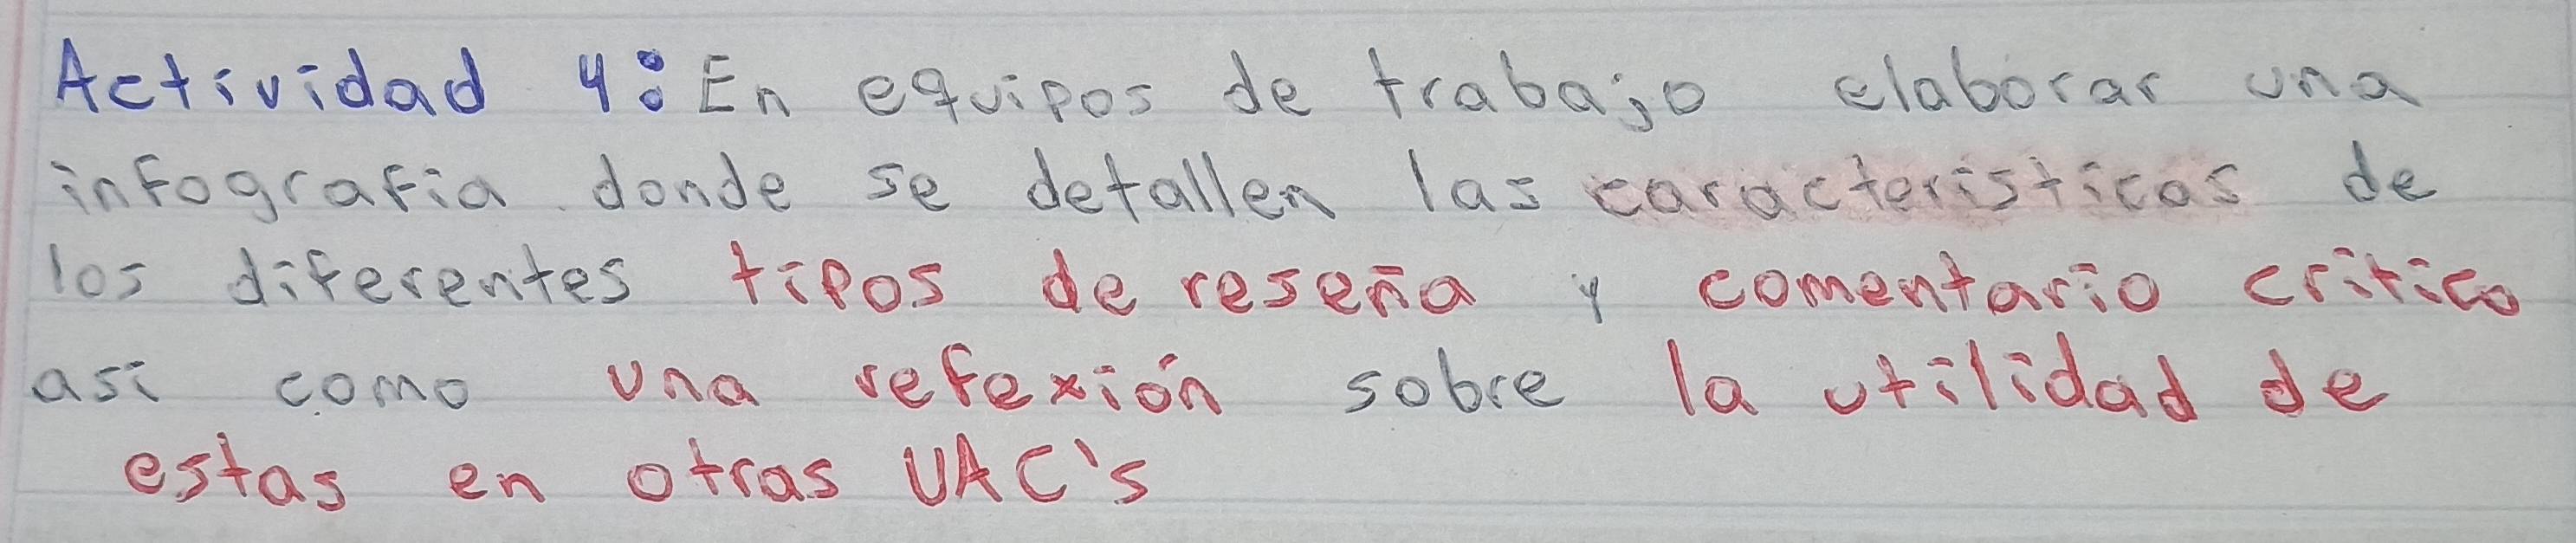 Actividad 4: En equipos de trabajo elaborar una
infografia donde se detallen las caracteristicas de
los diferentes tipos de reseña y comentario critico
asi como una refexión sobre la utilidad de
estas en otras UAC's